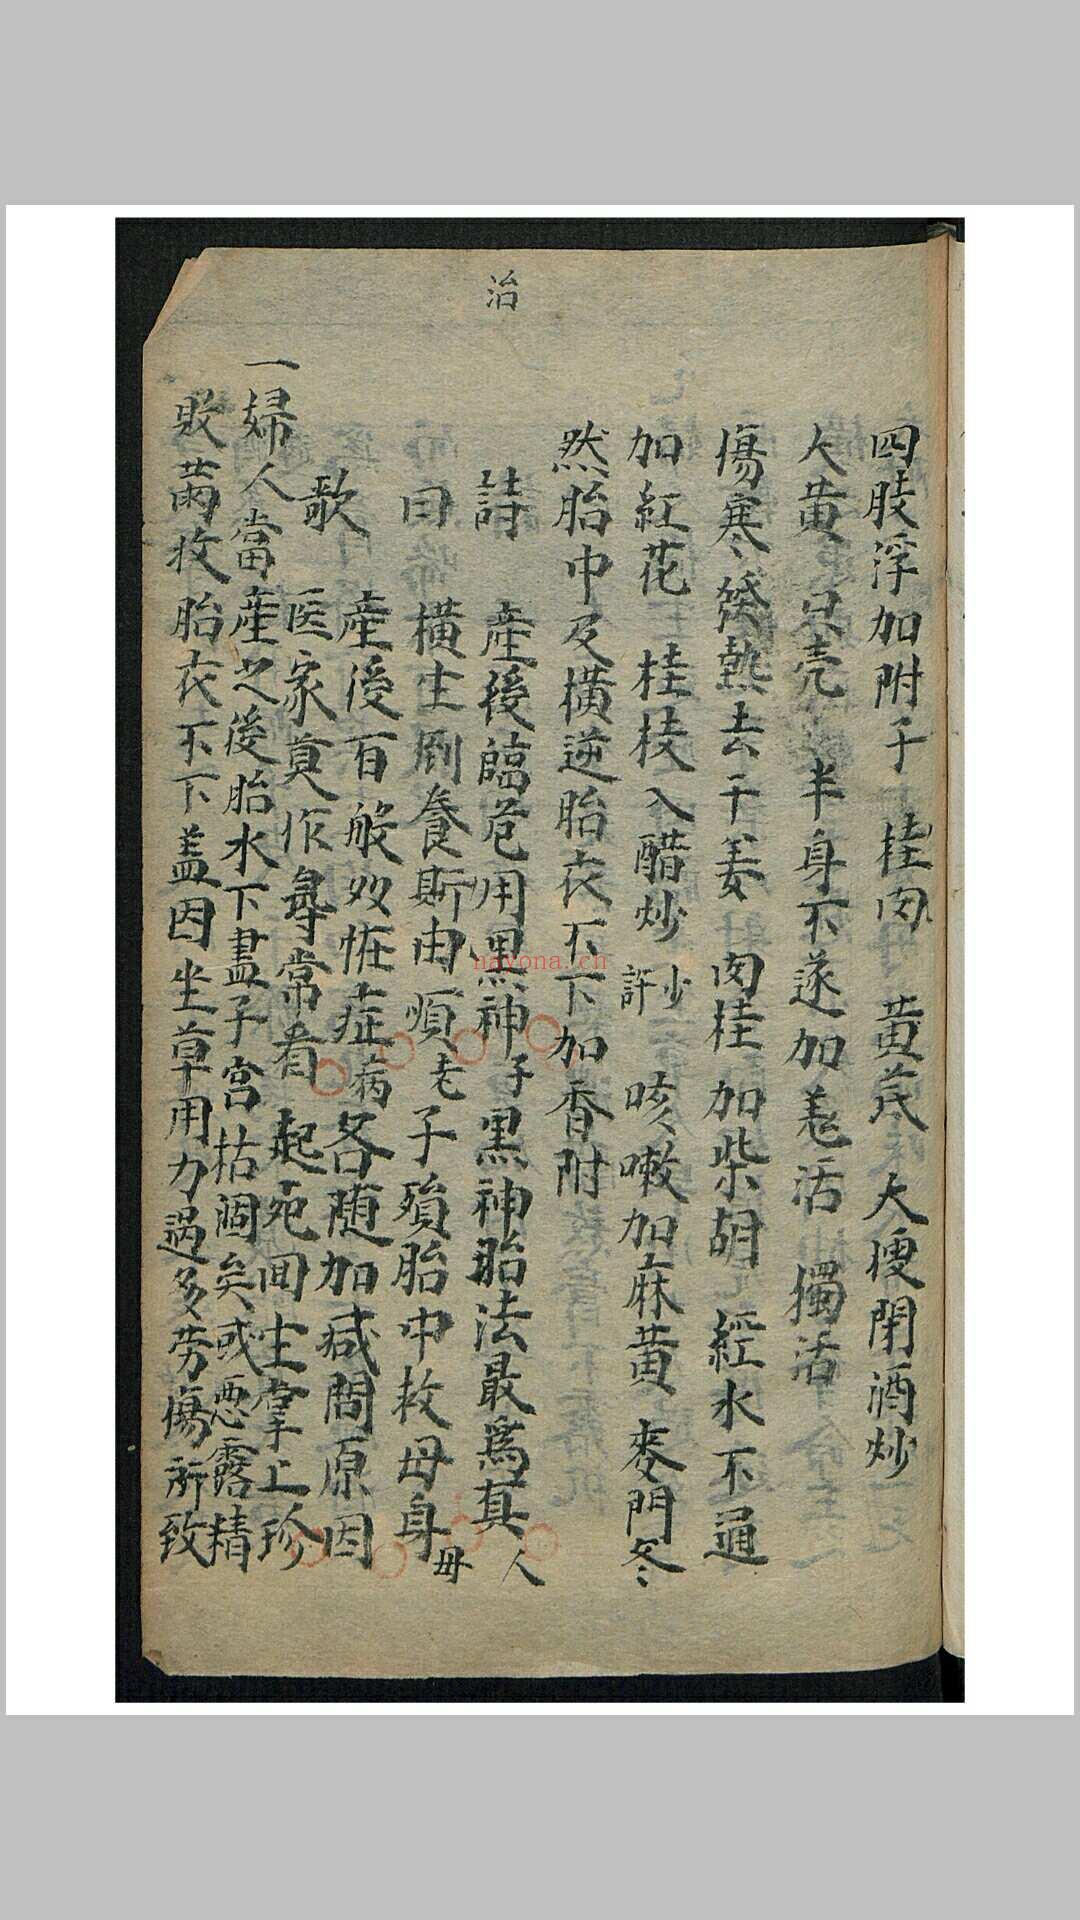 治
四肢浮加附子 桂肉 黄芪 大便閉酒炒
大黄 只壳 半身不遂加羌活 獨活
傷寒發熱去干姜 肉桂 加柴胡 經水不通
加紅花 桂枝入醋炒少許 咳嗽加麻黄 麥門冬
然胎中及橫逆胎衣不下加香附
詩 產後臨危用黑神子 黑神胎法最爲真人
曰 橫生倒養斯由順老 子殞胎中救母身母
歌 產後百般奴怪症病 各随加减問原因
医家莫作尋常看 起死回生掌上珍
一婦人當產之後胎水下盡子宮枯涸矣或悪露精
敗 攻胎衣不下盖因坐草用力過多劳傷所致
nayona.cn